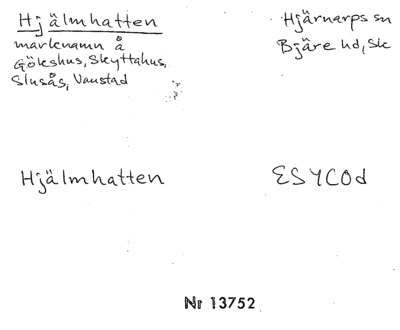 Hjälmhatten
Hjärnarps sn
marknamn å
Bjäre hd, Sk
Gökshus, Skyttahus,
Slusås, Vanstad
Hjälmhatten
ESYCOd
Nr 13752